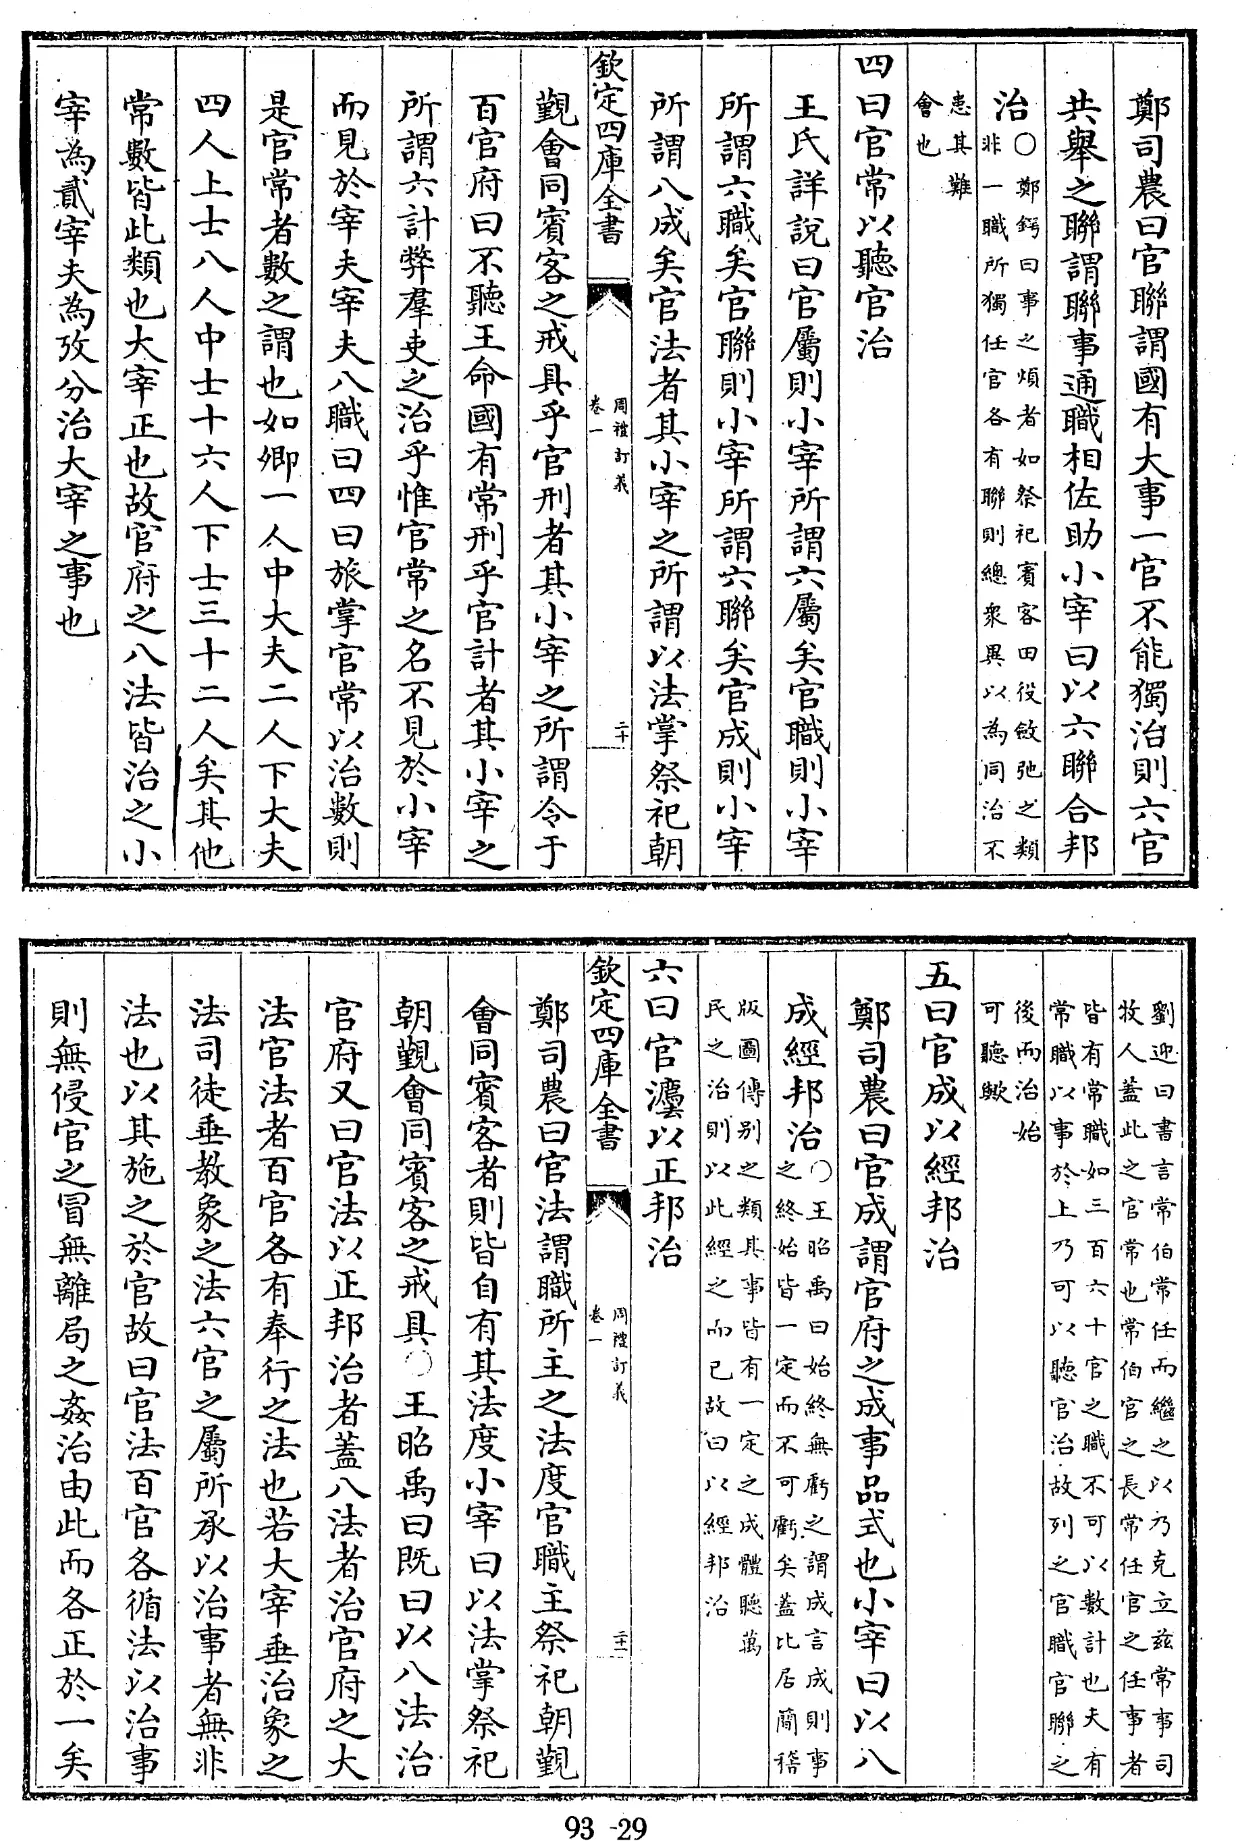 鄭司農曰官聯謂國有大事一官不能獨治則六官
共舉之聯謂聯事通職相佐助小宰曰以六聯合邦
治○鄭鍔曰事之煩者如祭祀賓客田役斂弛之類
非一職所獨任官各有聯則總衆異以為同治不
患其難
會也
四曰官常以聽官治
王氏詳說曰官屬則小宰所謂六屬矣官職則小宰
所謂六職矣官聯則小宰所謂六聯矣官成則小宰
所謂八成矣官法者其小宰之所謂以法掌祭祀朝
欽定四庫全書
周禮訂義
卷一
二十
覲會同賓客之戒具乎官刑者其小宰之所謂令于
百官府曰不聽王命國有常刑乎官計者其小宰之
所謂六計弊羣吏之治乎惟官常之名不見於小宰
而見於宰夫宰夫八職曰四曰旅掌官常以治數則
是官常者數之謂也如卿一人中大夫二人下大夫
四人上士八人中士十六人下士三十二人矣其他
常數皆此類也大宰正也故官府之八法皆治之小
宰為貳宰夫為攷分治大宰之事也
劉迎曰書言常伯常任而繼之以乃克立茲常事司
牧人蓋此之官常也常伯官之長常任官之任事者
皆有常職如三百六十官之職不可以數計也夫有
常職以事於上乃可以聽官治故列之官職官聯之
後而治始
可聽歟
五曰官成以經邦治
鄭司農曰官成謂官府之成事品式也小宰曰以八
成經邦治○王昭禹曰始終無虧之謂成言成則事
之終始皆一定而不可虧矣蓋比居簡稽
版圖傅别之類其事皆有一定之成體聽萬
民之治則以此經之而已故曰以經邦治
六曰官灋以正邦治
欽定四庫全書
周禮訂義
卷一
二十一
鄭司農曰官法謂職所主之法度官職主祭祀朝覲
會同賓客者則皆自有其法度小宰曰以法掌祭祀
朝覲會同賓客之戒具○王昭禹曰既曰以八法治
官府又曰官法以正邦治者蓋八法者治官府之大
法官法者百官各有奉行之法也若大宰垂治象之
法司徒垂教象之法六官之屬所承以治事者無非
法也以其施之於官故曰官法百官各循法以治事
則無侵官之冒無離局之姦治由此而各正於一矣
93-29